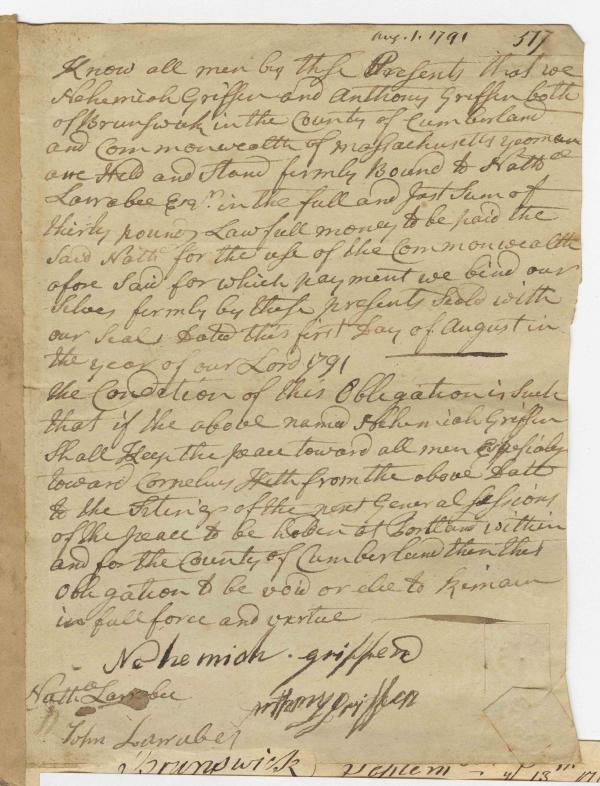 Aug. 1. 1791 517
Know all men by these Presents that we
Nehemiah Griffin and Anthony Griffin both
of Brunswick in the County of Cumberland
and Commonwealth of massachusetts yeoman
are Held and Stand firmly Bound to Nathll
Larrabee Esqr. in the full and Just Sum of
thirty pounds Lawfull money to be paid the
Said Nathll for the use of the Commonwealth
afore Said for which payment we bind our
Selves firmly by these presents Seald with
our Seals Dated this first Day of August in
the year of our Lord 1791
the Condition of this Obligation is Such
that if the above named Nehemiah Griffin
Shall Keep the peace toward all men espesialy
toward Cornelius from the above Datt
to the Sitings of the next General Sessions
of the peace to be holden at Portland within
and for the County of Cumberland then this
Obligation to be void or else to Remain
in full force and vertue
Nehemiah griffen
Nathll Larrabee
Anthony Griffen
John Larrabee
Brunswick Septem 13th 17